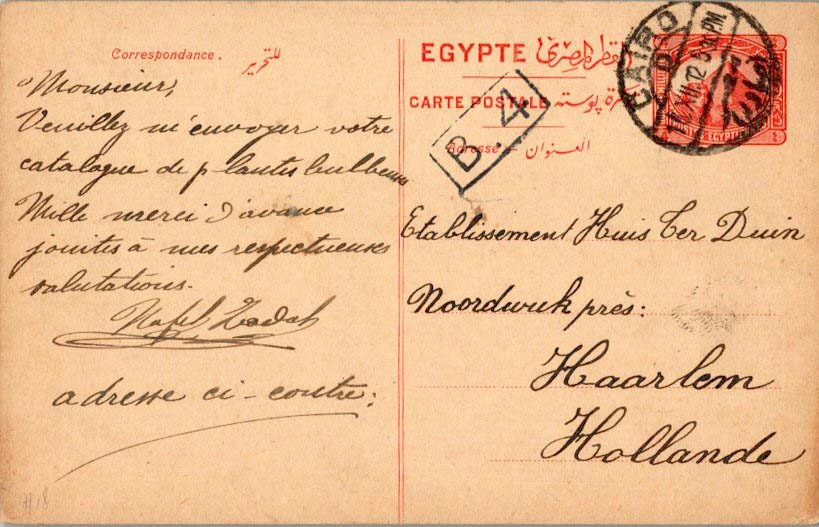 Correspondance. للتحرير
Monsieur,
Veuillez m'envoyer votre
catalogue de plantes bulbeuses
Mille merci d'avance
jointes à mes respectueuses
salutations.
adresse ci-contre:
H18
EGYPTE القطر المصرى
CARTE POSTALE تذكرة پوسته
Adresse – العنوان
B.4
CAIRO
XII.12
PM
POSTES EGYPTIENNES
Etablissement Huis Ter Duin
Noordwijk près:
Haarlem
Hollande